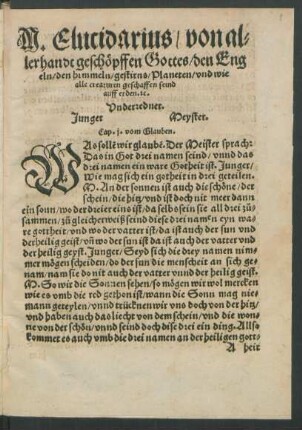 M. Elucidarius / von al-
lerhandt geschöpffen Gottes / den Eng
eln / den himmeln / gestirns / Planeten / vnd wie
alle creaturen geschaffen seind
auff erden. ꝛc.
Vnderredner.
Junger Meyster.
Cap. j. vom Glauben.
WAs söllẽ wir glaubẽ. Der Meister sprach:
Das in Got drei namen seind / vnnd das
drei namen ein ware Gotheit ist. Junger /
Wie mag sich ein gotheit in drei geteilen.
M. An der sonnen ist auch die schöne / der
schein / die hitz / vnd ist doch nit meer dann
ein sonn / wo der dreier eins ist / da selbst sein sie all drei zů
sammen / zů gleicherweiß seind dise drei namẽ eyn wa-
re gottheit / vnd wo der vatter ist / da ist auch der sun vnd
der heilig geist / vñ wo der sun ist da ist auch der vatter vnd
der heilig geyst. Junger / Seyd sich die drey namen nim-
mer mögen scheiden / do der sun die menscheit an sich ge-
nam / nam sie do nit auch der vatter vnnd der heilig geist.
M. So wir die Sonnen sehen / so mögen wir wol mercken
wie es vmb die red gethon ist / wann die Sonn mag nie-
mann geteylen / vnnd trücknen wir vns doch von der hitz /
vnd haben auch das liecht von dem schein / vnd die won-
ne von der schön / vnnd seind doch dise drei ein ding. Also
kommet es auch vmb die drei namen an der heiligen gott-
A heit